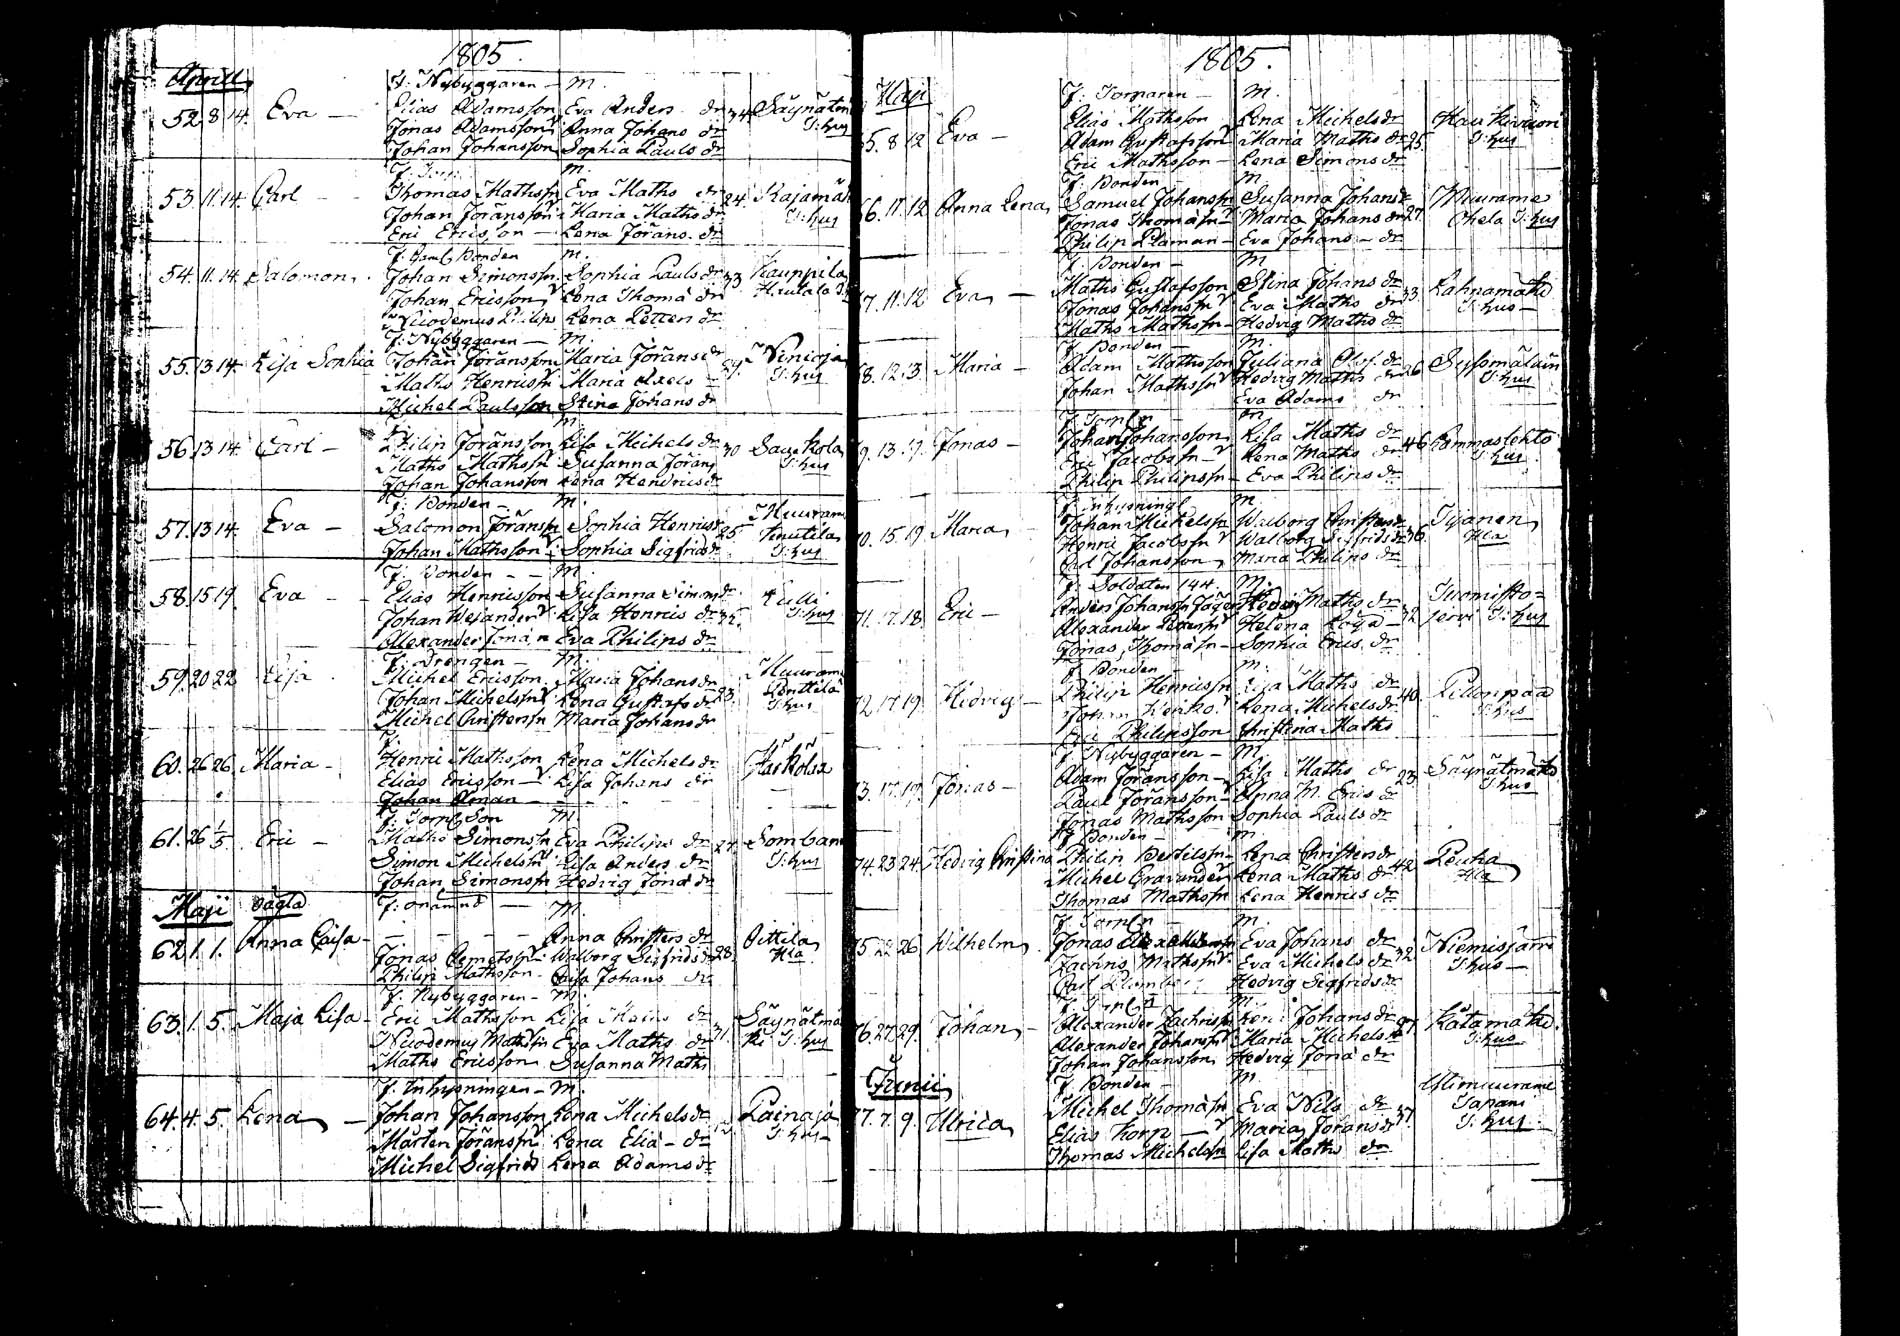 1805.
Aprill
F: Nybyggaren — M.
52. 8. 14. Eva — Elias Adamsson Eva Anders dr 34 Säynätm
Jonas Adamsson Anna Johans dr T: hus
Johan Johansson Sophia Pauls dr
F: Torp. M.
53. 11. 14. Carl — Thomas Mathssn Eva Maths dr 24. Rajamäk
Johan Joransson Maria Maths dr T: hus
Eric Ericsson — Lena Jörans dr
F: Bonden M.
54. 11. 14. Salomon. Johan Simonssn Sophia Pauls dr 33 Kauppila
Johan Ericsson Lena Thoma dr
Nicodemus Philips Lena Petters dr
F: Nybyggaren — M.
55. 13. 14. Lisa Sophia Johan Joransson Maria Jörans dr 39. Ninioja
Maths Henricssn Maria Axels — T: hus
Michel Paulsson Stina Johans dr
M.
56. 13. 14. Carl — Philip Joransson Lisa Michels dr 30 Saukola
Maths Mathssn Susanna Jörans T: hus
Johan Johansson Lena Hendrics dr
F: Bonden — M.
57. 13. 14. Eva — Salomon Joranssn Sophia Henrics dr 25. Muuram
Johan Mathsson Sophia Sigfrids dr Knutila T: hus
F: Bonden — M.
58. 15. 19. Eva — Elias Henricsson Susanna Simons dr
Johan Wesander Lisa Henrics dr 32. T: hus
Alexander Jona n Eva Philips dr
F: Drengen — M.
59. 20. 22. Lisa Michel Ericsson Maria Johans dr Muuram
Johan Michelssn Lena Gustafs dr 23. Penttilä T: hus
Michel Christerssn Maria Johans dr
F:
60. 26. 26. Maria — Henric Mathsson Lena Michels dr Karkola
Elias Ericsson — Lisa Johans dr
Johan Aman —
F: Torp. Son M.
61. 26 1/5 Eric — Maths Simonssn Eva Philips dr 27. Sombam
Simon Michelssn Lisa Anders dr T: hus
Johan Simonssn Hedvig Jona dr
Maji oägta F: onämnd — M.
62. 1. 1. Anna Caisa — Anna Christers dr Pittila
Jonas Clemetssn Walborg Sigfrids dr 28. Kla
Philip Mathsson — Caisa Johans dr
F: Nybyggaren — M.
63. 1. 5. Maja Lisa — Eric Mathsson Lisa Maths dr 31. Säynätmä
Nicodemus Mathssn Eva Maths dr ki T: hus
Maths Ericsson Susanna Maths
F: Inhysningen — M.
64. 4. 5. Lena — Johan Johansson Lena Michels dr Painaja
Mårten Joranssn Lena Elia — dr T: hus
Michel Sigfrids Lena Adams dr
1805.
Maji
F: Torparen — M.
65. 8. 12 Eva — Elias Mathsson Lena Michels dr
Adam Gustafsson Maria Maths dr 25. T: hus
Eric Mathsson — Lena Simons dr
F: Bonden — M.
66. 11. 12 Anna Lena Samuel Johanssn Susanna Johans dr Muurame
Jonas Thomassn Maria Johans dr 27. Ohela T: hus
Philip Plaman — Eva Johans — dr
F: Bonden — M
67. 11. 12 Eva — Maths Gustafsson Stina Johans dr 33. Lahnamäki
Jonas Johanssn Eva Maths dr T: hus —
Maths Mathssn — Hedvig Maths dr
F: Bonden — M.
68. 12. 13. Maria — Adam Mathsson Juliana Olof. dr 26 Syssmäläin
Johan Mathsson Hedvig Maths dr T: hus
Eva Adams dr
F: Torp. M.
69. 13. 19. Jonas — Johan Johansson Lisa Maths dr 46 Lammaslehto
Eric Jacobssn — Lena Maths dr T: hus
Philip Philipssn — Eva Philips dr
F: Inhysning M.
70. 15. 19 Maria Johan Michelssn Walborg Christers dr Tijanen
Henric Jacobssn Walborg Sigfrids dr 36. Kla
Carl Johansson Maria Philips dr
F: Soldaten 144. M.
71. 17. 18. Eric — Anders Johanssn Jäger Hedvig Maths dr 32 Tuomisto=
Alexander Peterssn Helena Lågd — jerwi T: hus
Jonas Thomassn — Sophia Erics dr
F: Bonden — M.
72. 17. 19. Hedvig — Philip Henricssn Lisa Maths dr 40. Pellonpää
Johan Kenko Lena Michels dr T: hus
Eric Philipsson Christina Maths
F: Nybyggaren — M.
73. 17. 19. Jonas — Adam Joransson — Lisa Maths dr 23. Säynätmäki
Paul Joransson — Anna M. Erics dr T: hus
Jonas Mathsson Sophia Pauls dr
F: Bonden — M
74. 23. 24. Hedvig Christina Philip Bertilssn — Lena Christers dr 42. Peuha
Michel Gravander Lena Maths dr Kla
Thomas Mathssn Lena Henrics dr
F: Torp. — M.
75. 22. 26. Wilhelm. Jonas Alexanderssn Eva Johans dr 32. Niemisjärvi
Zachris Mathssn Eva Michels dr T: hus —
Carl Hedvig Sigfrids dr
F: Torp. M.
76. 27. 29. Johan — Alexander Zachrissn Johans dr 27. Kåtamäki
Alexander Johanssn Maria Michels dr T: hus
Johan Johansson Hedvig Jona dr
Junii
F: Bonden — M.
77. 7. 9. Ulrica Michel Thomassn Eva Nils dr 37. Ylimuurame
Elias Korp — Maria Jorans dr Tapani
Thomas Michelssn Lisa Maths dr T: hus